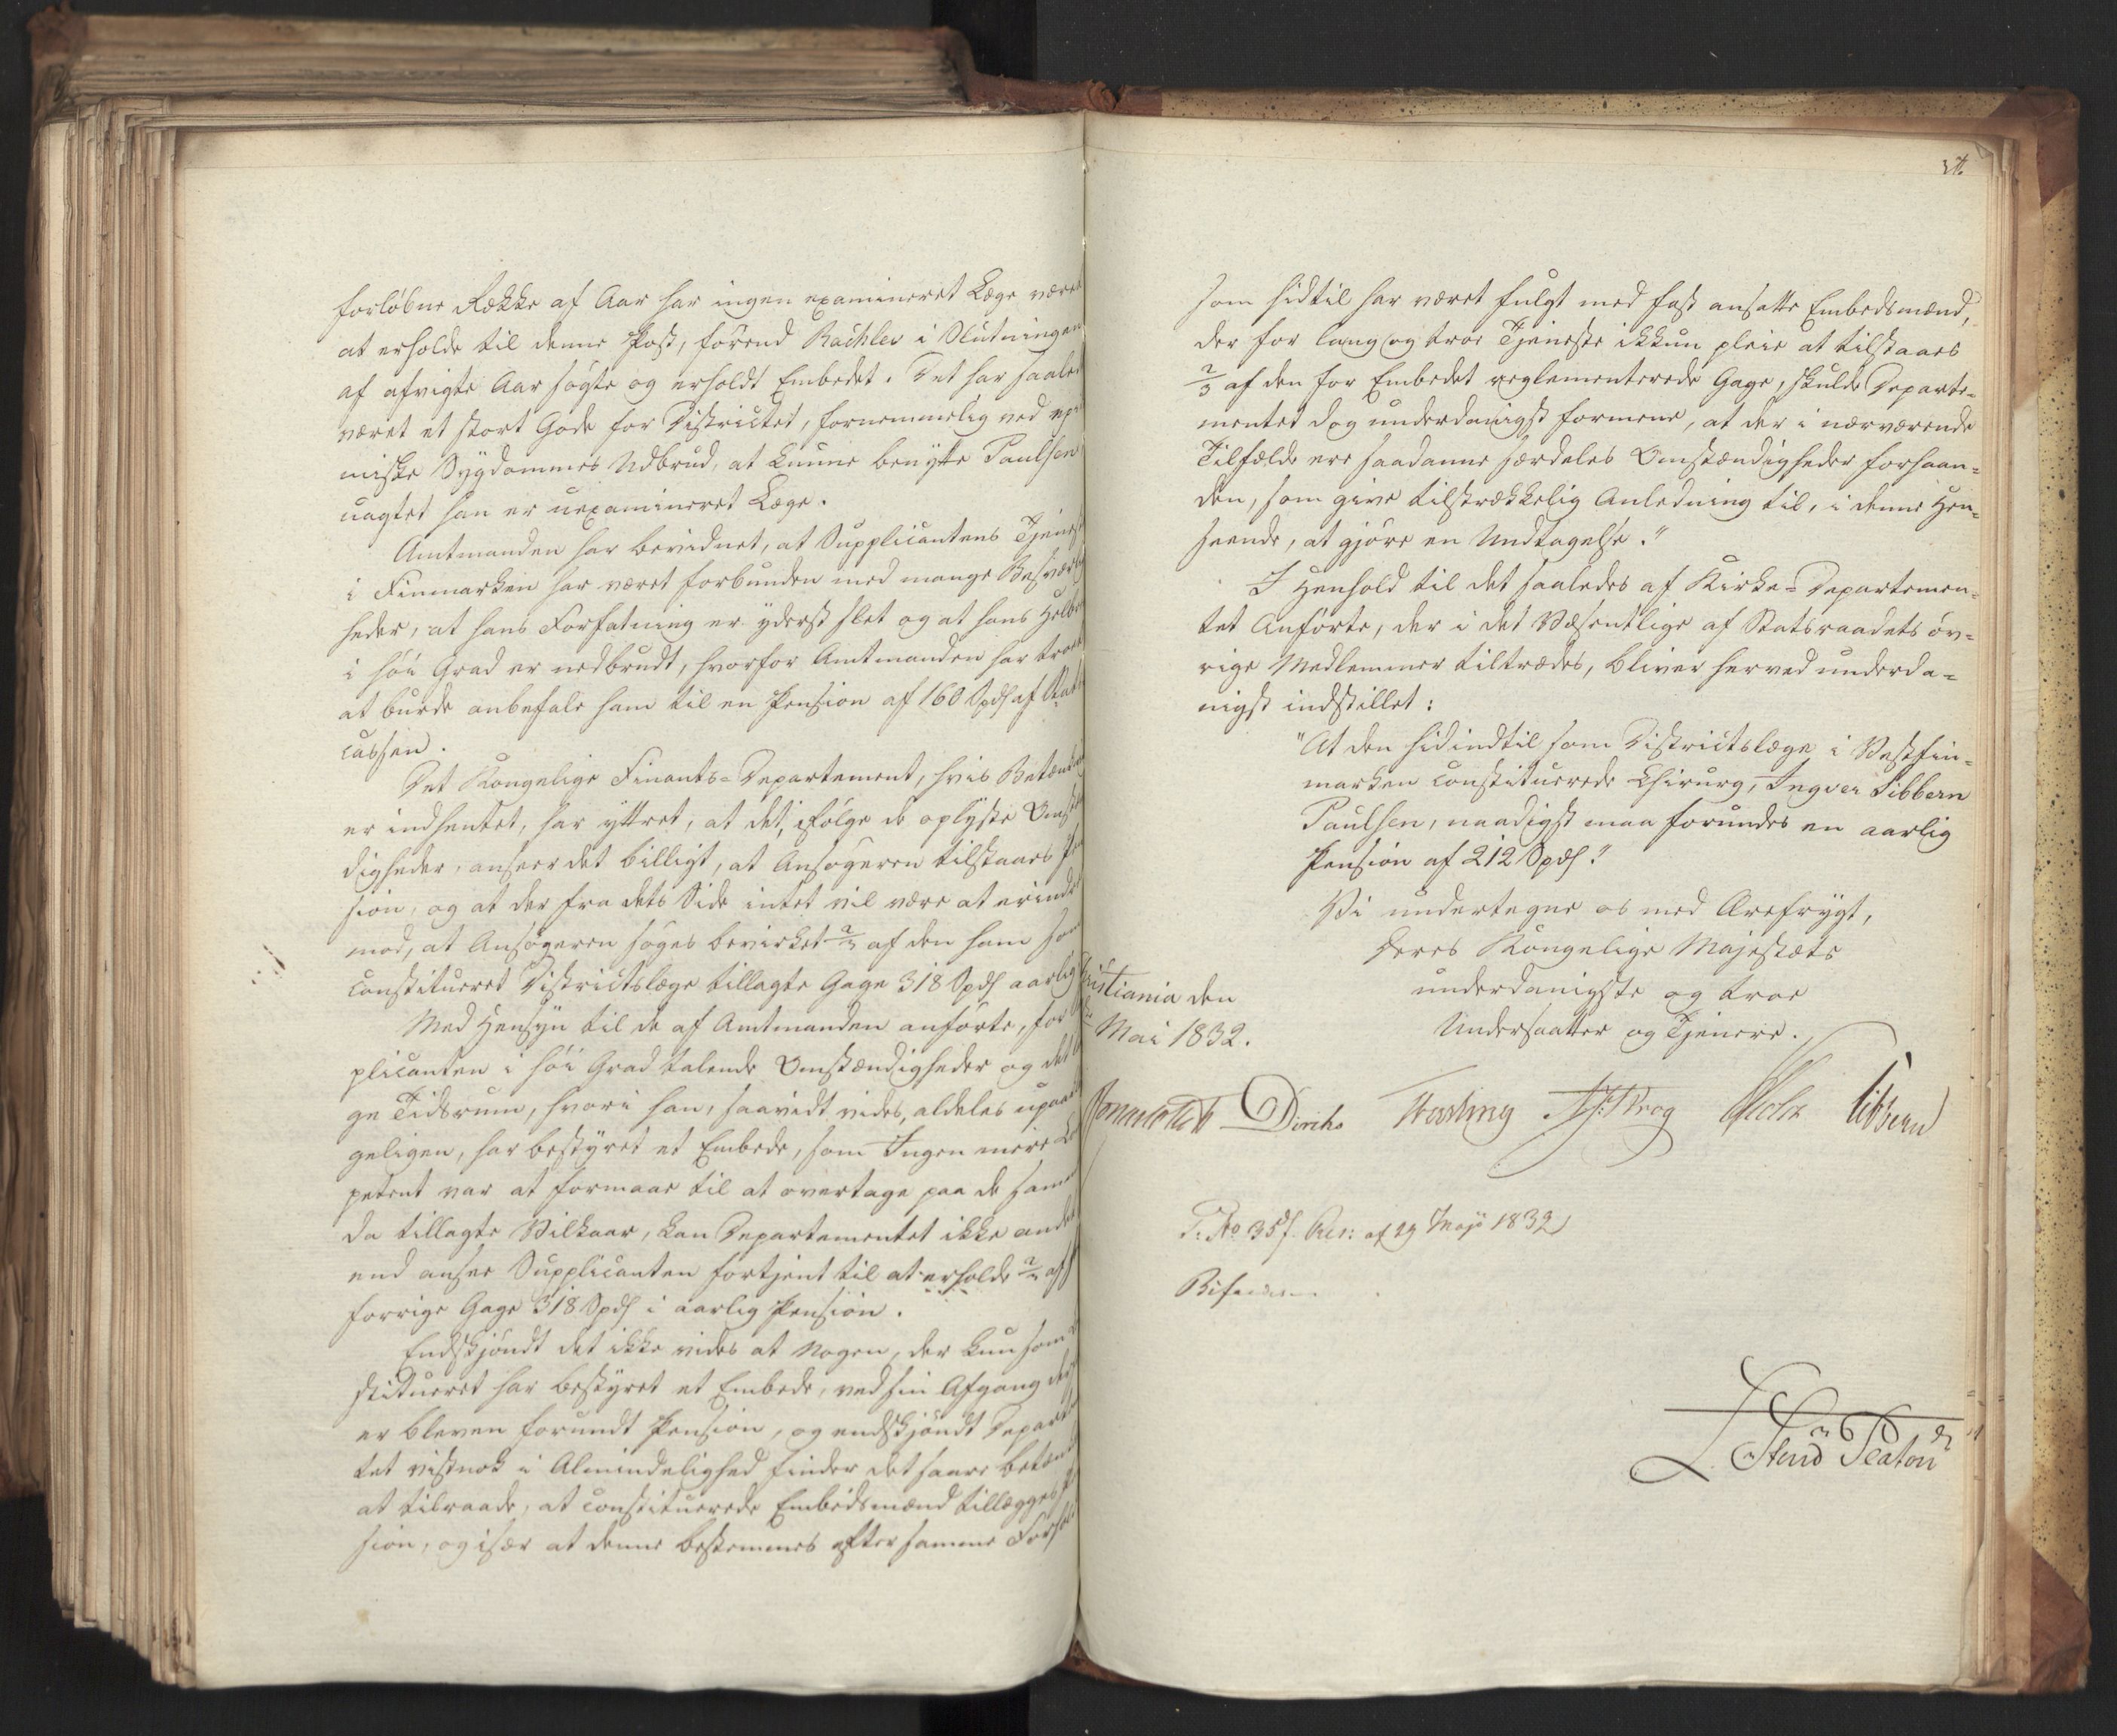 forløbne Række af Aar har ingen examineret Læge været
at erholde til denne Post, førend Rachlev i Slutningen
af afvigte Aar søgte og erholdt Embedet. Det har saale
været et stort Gode for Districtet, fornemmelig ved epi
miske Sygdommes Udbrud, at kunne benytte Paulsen
uagtet han er uexamineret Læge.
Amtmanden har bevidnet, at Supplicantens Tjenest
i Finmarken har været forbunden med mange Besværlig
heder, at hans Forfatning er yderst slet og at hans Helbre
i høi Grad er nedbrudt, hvorfor Amtmanden har troet
at burde anbefale ham til en Pension af 160 Spd af Stats
cassen.
Det Kongelige Finants-Departement, hvis Betænkn
er indhentet, har yttret, at det, ifølge de oplyste Omst
digheder, anseer det billigt, at Ansøgeren tilstaaes Pen
sion, og at der fra dets Side intet vil være at erindre
mod, at Ansøgeren søges bevirket 2/3 af den ham som
constitueret Districtslæge tillagte Gage 318 Spd aarlig
Med Hensyn til de af Amtmanden anførte, for
plicanten i høi Grad talende Omstændigheder og det la
ge Tidsrum, hvori han, saavidt vides, aldeles upaakl
geligen, har bestyret et Embede, som Ingen mere Co
petent var at formaae til at overtage paa de samme
da tillagte Vilkaar, kan Departementet ikke andet
end ansee Supplicanten fortjent til at erholde 2/3 af
forrige Gage 318 Spd i aarlig Pension.
Endskjøndt det ikke vides at Nogen, der kun som
stitueret har bestyret et Embede, ved sin Afgang der
er bleven forundt Pension, og endskjøndt Departe
tet vistnok i Almindelighed finder det saare betænk
at tilraade, at constituerede Embedsmænd tillægges P
sion, og især at denne bestemmes efter samme Forhol
som hidtil har været fulgt med fast ansatte Embedsmænd,
der for lang og troe Tjeneste ikkun pleie at tilstaaes
2/3 af den for Embedet reglementerede Gage, skulde Departe-
mentet dog underdanigst formene, at der i nærværende
Tilfælde ere saadanne særdeles Omstændigheder forhaan-
den, som give tilstrækkelig Anledning til, i denne Hen-
seende, at gjøre en Undtagelse."
I Henhold til det saaledes af Kirke-Departemen-
tet Anførte, der i det Væsentlige af Statsraadets øv-
rige Medlemmer tiltrædes, bliver herved underda-
nigst indstillet:
"At den hidindtil som Districtslæge i Vestfin-
marken constituerede Chirurg, Ingver Sibbern
Paulsen, naadigst maa forundes en aarlig
Pension af 212 Spd."
Vi undertegne os med Ærefrygt,
Deres Kongelige Majestæts
underdanigste og troe
Undersaatter og Tjenere.
ristiania den
Mai 1832.
Diriks Fasting Krog Holst Sibbern
Res: af 29 Maji 1832